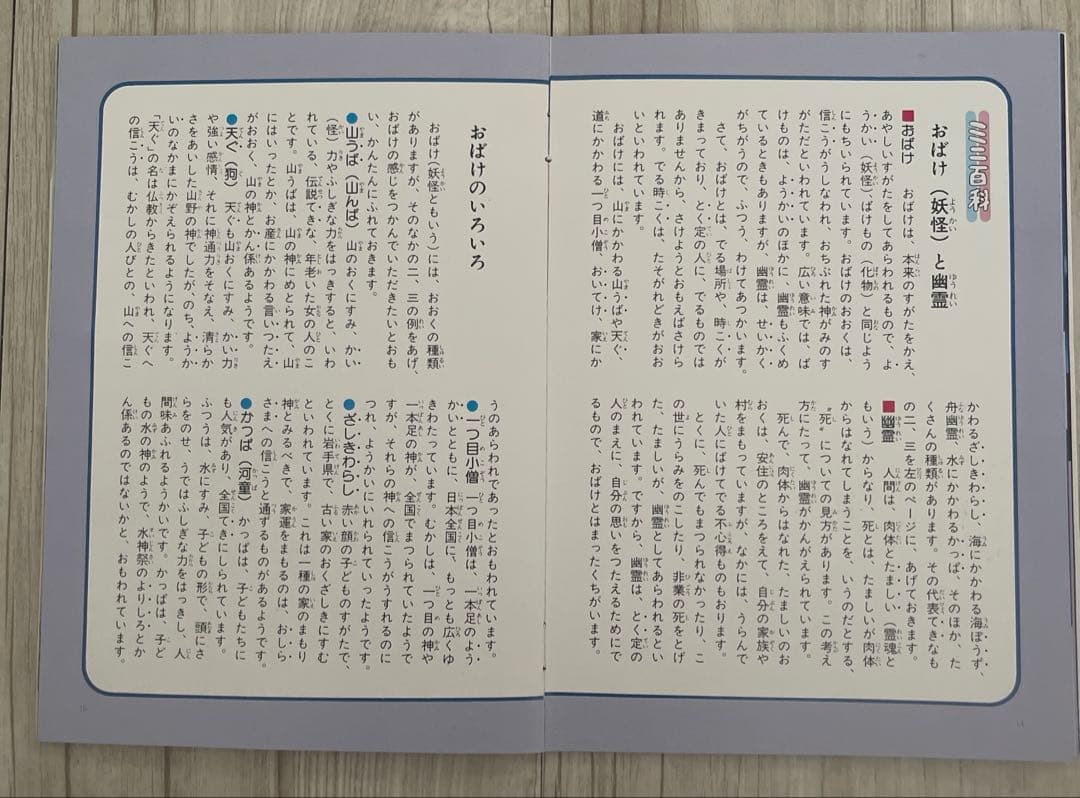 ミニ百科
おばけ（妖怪）と幽霊
■おばけ　おばけは、本来のすがたをかえ、
あやしいすがたをしてあらわれるもので、よ
うかい（妖怪）、ばけもの（化物）と同じよう
にもちいられています。おばけのおおくは、
信こうがうしなわれ、おちぶれた神がみのす
がただといわれています。広い意味では、ば
けものは、ようかいのほかに、幽霊もふくめ
ているときもありますが、幽霊は、せいかく
がちがうので、ふつう、わけてあつかいます。
さて、おばけとは、でる場所や、時こくが
きまっており、とく定の人に、でるものでは
ありませんから、さけようとおもえばさけら
れます。でる時こくは、たそがれどきがおお
いといわれています。
おばけには、山にかかわる山うばや天ぐ、
道にかかわる一つ目小僧、おいてけ、家にか
かわるざしきわらし、海にかかわる海ぼうず、
舟幽霊、水にかかわるかっぱ、そのほか、た
くさんの種類があります。その代表てきなも
の二、三を左のページに、あげておきます。
■幽霊　人間は、肉体とたましい（霊魂と
もいう）からなり、死とは、たましいが肉体
からはなれてしまうことを、いうのだとする、
“死”についての見方があります。この考え
方にたって、幽霊がかんがえられています。
死んで、肉体からはなれた、たましいのお
おくは、安住のところをえて、自分の家族や
村をまもっていますが、なかには、うらんで
いた人にばけてでる不心得ものもおります。
とくに、死んでもまつられなかったり、こ
の世にうらみをのこしたり、非業の死をとげ
た、たましいが、幽霊としてあらわれるとい
われています。ですから、幽霊は、とく定の
人のまえに、自分の思いをつたえるためにで
るもので、おばけとはまったくちがいます。
14
おばけのいろいろ
おばけ（妖怪ともいう）には、おおくの種類
がありますが、そのなかの二、三の例をあげ、
おばけの感じをつかんでいただきたいとおも
い、かんたんにふれておきます。
●山うば（山んば）　山のおくにすみ、かい
（怪）力やふしぎな力をはっきすると、いわ
れている、伝説てきな、年老いた女の人のこ
とです。山うばは、山の神にめとられて、山
にはいったとか、お産にかかわる言いつたえ
がおおく、山の神とかん係あるようです。
●天ぐ（狗）　天ぐも山おくにすみ、かい力
や強い感情、それに神通力をそなえ、清らか
さをあいした山野の神でしたが、のち、ようか
いのなかまにかぞえられるようになります。
「天ぐ」の名は仏教からきたといわれ、天ぐへ
の信こうは、むかしの人びとの、山への信こ
うのあらわれであったとおもわれています。
●一つ目小僧　一つ目小僧は、一本足のよう
かいとともに、日本全国に、もっとも広くゆ
きわたっています。むかしは、一つ目の神や
一本足の神が、全国でまつられていたようで
すが、それらの神への信こうがうすれるのに
つれ、ようかいにいれられていったようです。
●ざしきわらし　赤い顔の子どものすがたで、
とくに岩手県で、古い家のおくざしきにすむ
といわれています。これは一種の家のまもり
神とみるべきで、家運をまもるのは、おしら
さまへの信こうと通ずるものがあるようです。
●かっぱ（河童）　かっぱは、子どもたちに
も人気があり、全国てきにしられています。
ふつうは、水にすみ、子どもの形で、頭にさ
らをのせ、うではふしぎな力をはっきし、人
間味あふれるようかいです。かっぱは、子ど
もの水の神のようで、水神祭のよりしろとか
ん係あるのではないかと、おもわれています。
15